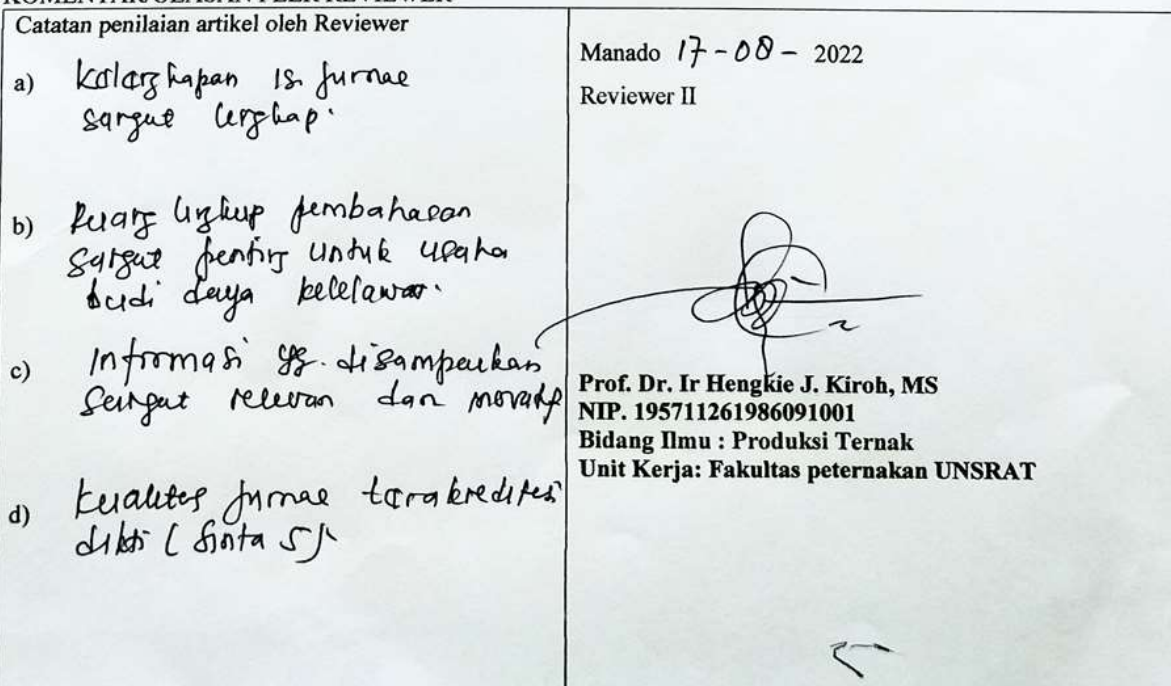 KOMENTAR/ULASAN PEER REVIEWER
Catatan penilaian artikel oleh Reviewer
a) Kelengkapan isi jurnal
sangat lengkap.
b) Ruang lingkup pembahasan
sangat penting untuk usaha
budi daya kelelawar.
c) Informasi yg. disampaikan
sangat relevan dan
d) kualitas jurnal terakreditasi
dikti (Sinta 5).
Manado 17-08-2022
Reviewer II
Prof. Dr. Ir Hengkie J. Kiroh, MS
NIP. 195711261986091001
Bidang Ilmu : Produksi Ternak
Unit Kerja: Fakultas peternakan UNSRAT